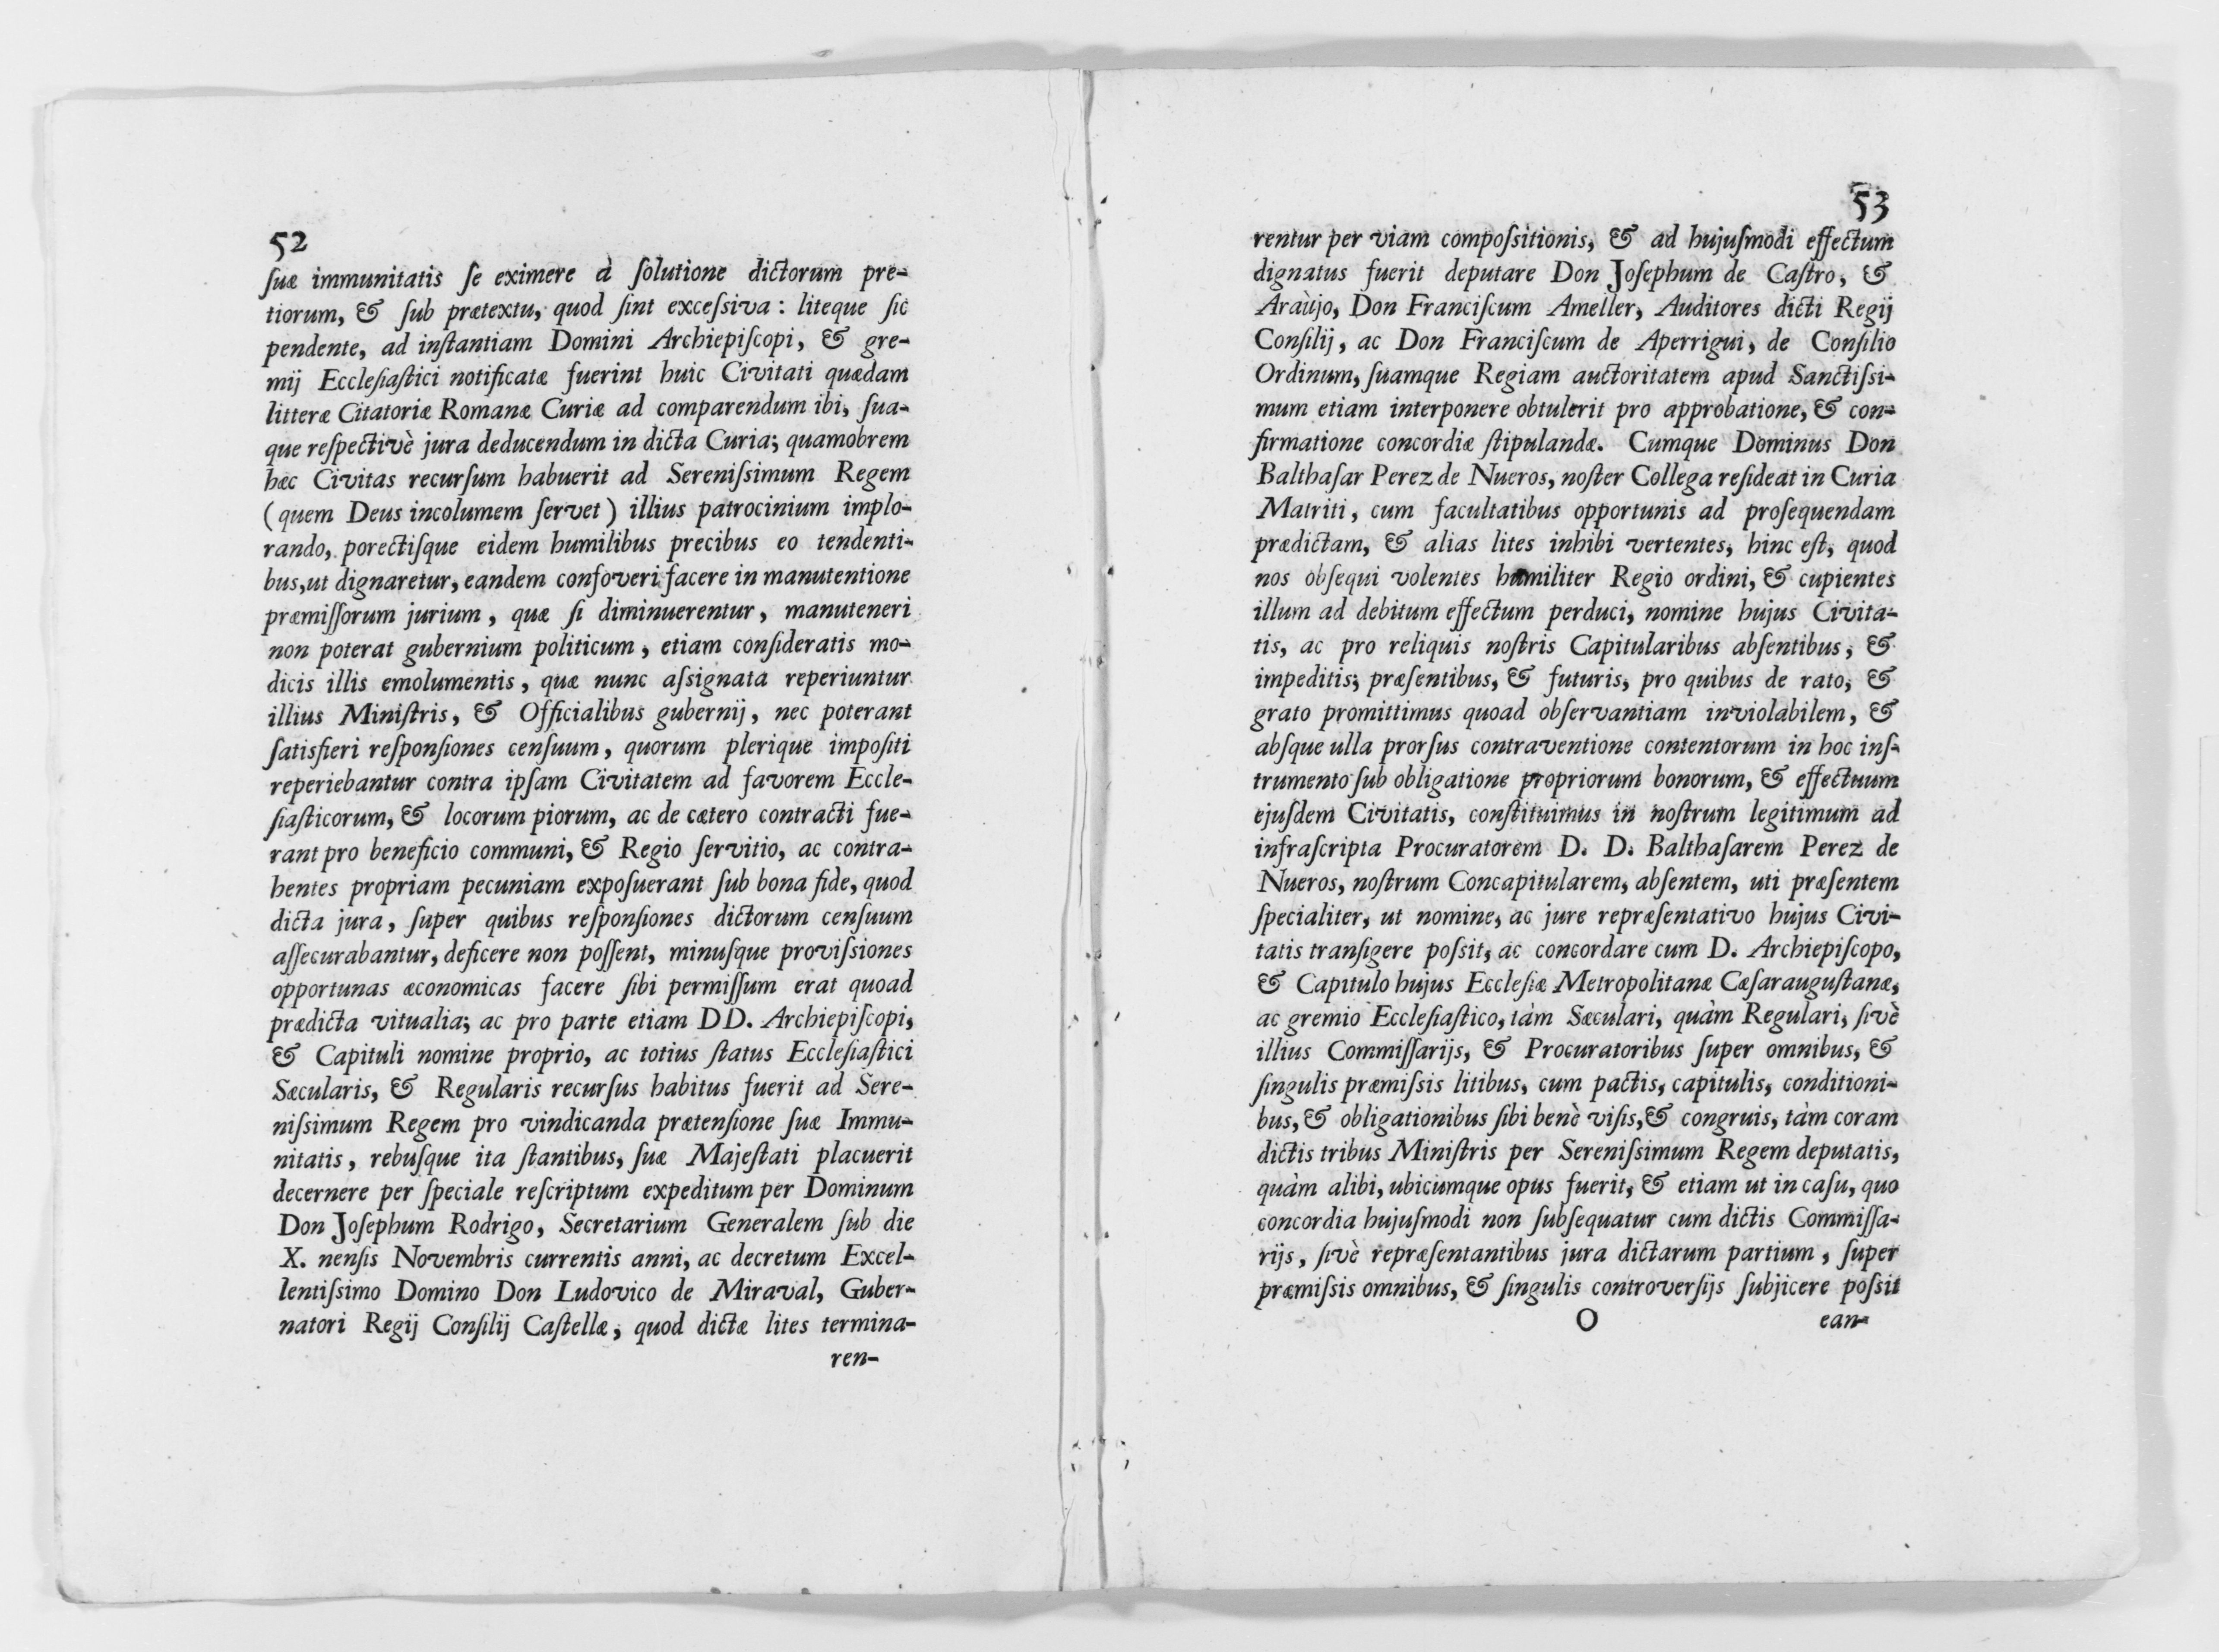 52
ſuæ immunitatis ſe eximere à ſolutione dictorum pre-
tiorum, & ſub prætextu, quod ſint exceſsiva : liteque ſic
pendente, ad inſtantiam Domini Archiepiſcopi, & gre-
mij Eccleſiaſtici notificatæ fuerint huic Civitati quædam
litteræ Citatoriæ Romanæ Curiæ ad comparendum ibi, ſua-
que reſpectivè jura deducendum in dicta Curia; quamobrem
hæc Civitas recurſum habuerit ad Sereniſsimum Regem
( quem Deus incolumem ſervet ) illius patrocinium implo-
rando, porectiſque eidem humilibus precibus eo tendenti-
bus, ut dignaretur, eandem confoveri facere in manutentione
præmiſſorum jurium, quæ ſi diminuerentur, manuteneri
non poterat gubernium politicum, etiam conſideratis mo-
dicis illis emolumentis, quæ nunc aſsignata reperiuntur
illius Miniſtris, & Officialibus gubernij, nec poterant
ſatisfieri reſponſiones cenſuum, quorum plerique impoſiti
reperiebantur contra ipſam Civitatem ad favorem Eccle-
ſiaſticorum, & locorum piorum, ac de cætero contracti fue-
rant pro beneficio communi, & Regio ſervitio, ac contra-
hentes propriam pecuniam expoſuerant ſub bona fide, quod
dicta jura, ſuper quibus reſponſiones dictorum cenſuum
aſſecurabantur, deficere non poſſent, minuſque proviſsiones
opportunas æconomicas facere ſibi permiſſum erat quoad
prædicta vitualia; ac pro parte etiam DD. Archiepiſcopi,
& Capituli nomine proprio, ac totius ſtatus Eccleſiaſtici
Sæcularis, & Regularis recurſus habitus fuerit ad Sere-
niſsimum Regem pro vindicanda prætenſione ſuæ Immu-
nitatis, rebuſque ita ſtantibus, ſuæ Majeſtati placuerit
decernere per ſpeciale reſcriptum expeditum per Dominum
Don Joſephum Rodrigo, Secretarium Generalem ſub die
X. nenſis Novembris currentis anni, ac decretum Excel-
lentiſsimo Domino Don Ludovico de Miraval, Guber-
natori Regij Conſilij Caſtellæ, quod dictæ lites termina-
ren-
53
rentur per viam compoſsitionis, & ad hujuſmodi effectum
dignatus fuerit deputare Don Joſephum de Caſtro, &
Araùjo, Don Franciſcum Ameller, Auditores dicti Regij
Conſilij, ac Don Franciſcum de Aperrigui, de Conſilio
Ordinum, ſuamque Regiam auctoritatem apud Sanctiſsi-
mum etiam interponere obtulerit pro approbatione, & con-
firmatione concordiæ ſtipulandæ. Cumque Dominus Don
Balthaſar Perez de Nueros, noſter Collega reſideat in Curia
Matriti, cum facultatibus opportunis ad proſequendam
prædictam, & alias lites inhibi vertentes, hinc eſt, quod
nos obſequi volentes humiliter Regio ordini, & cupientes
illum ad debitum effectum perduci, nomine hujus Civita-
tis, ac pro reliquis noſtris Capitularibus abſentibus, &
impeditis; præſentibus, & futuris, pro quibus de rato, &
grato promittimus quoad obſervantiam inviolabilem, &
abſque ulla prorſus contraventione contentorum in hoc inſ-
trumento ſub obligatione propriorum bonorum, & effectuum
ejuſdem Civitatis, conſtituimus in noſtrum legitimum ad
infraſcripta Procuratorem D. D. Balthaſarem Perez de
Nueros, noſtrum Concapitularem, abſentem, uti præſentem
ſpecialiter, ut nomine, ac jure repræſentativo hujus Civi-
tatis tranſigere poſsit, ac concordare cum D. Archiepiſcopo,
& Capitulo hujus Eccleſiæ Metropolitanæ Cæſarauguſtanæ,
ac gremio Eccleſiaſtico, tàm Sæculari, quàm Regulari, ſivè
illius Commiſſarijs, & Procuratoribus ſuper omnibus, &
ſingulis præmiſsis litibus, cum pactis, capitulis, conditioni-
bus, & obligationibus ſibi benè viſis, & congruis, tàm coram
dictis tribus Miniſtris per Sereniſsimum Regem deputatis,
quàm alibi, ubicumque opus fuerit, & etiam ut in caſu, quo
concordia hujuſmodi non ſubſequatur cum dictis Commiſſa-
rijs, ſivè repræſentantibus jura dictarum partium, ſuper
præmiſsis omnibus, & ſingulis controverſijs ſubjicere poſsit
O ean-